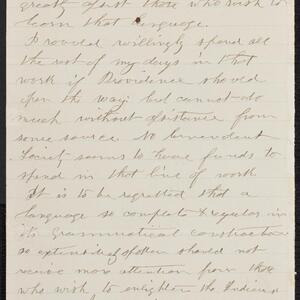 greatly assist those who wish to
learn that language.
I would willingly spend all
the rest of my days in that
work if Providence should
open the way; but cannot do
much without assistance from
some source. No benevolent
Society seems to have funds to
spend in that line of work
It is to be regretted that a
language so complete & regular in
its Grammatical construction
so extensive should not
receive more attention from those
who wish to enlighten the Indians